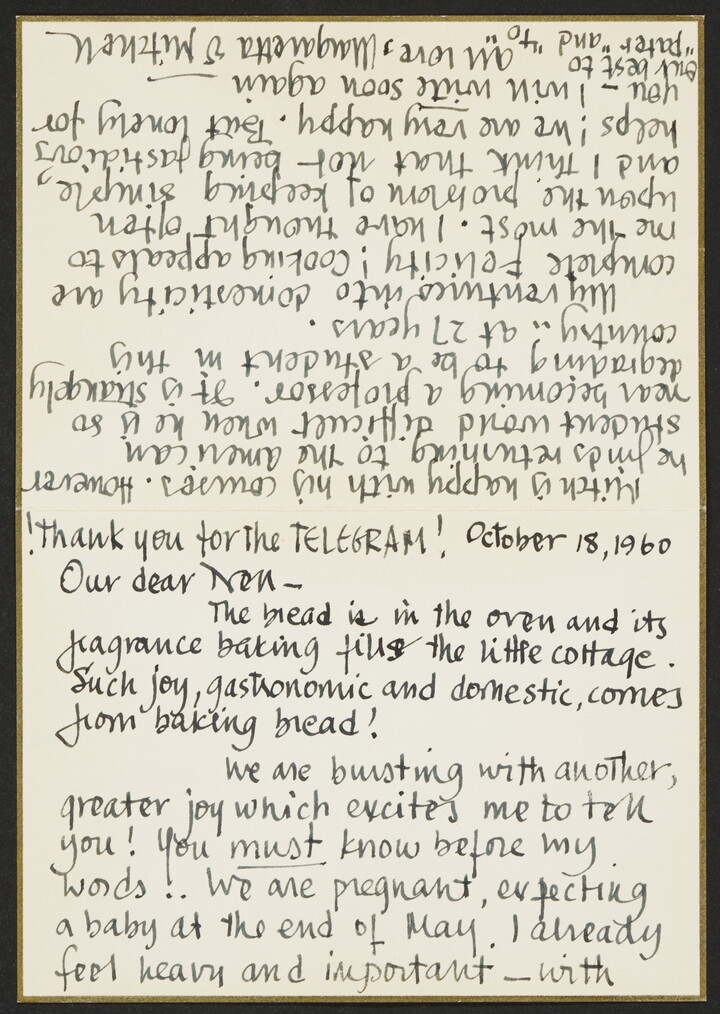 !Thank you for the TELEGRAM! October 18, 1960
Our dear Nell –
The bread is in the oven and its
fragrance baking fills the little cottage.
Such joy, gastronomic and domestic, comes
from baking bread!
We are bursting with another,
greater joy which excites me to tell
you! You must know before my
words!.. We are pregnant, expecting
a baby at the end of May. I already
feel heavy and important – with
Mitch is happy with his courses. However
he finds returning to the American
student world difficult when he is so
near becoming a professor. It is strangely
degrading to be a student in this
country.. at 27 years.
My ventures into domesticity are
complete felicity! Cooking appeals to
me the most. I have thought often
upon the problem of keeping simple,
and I think that not being fastidious
helps! We are very happy. But lonely for
you – I will write soon again
our best to
"pater" and "to" all love, Margaretta & Mitchell